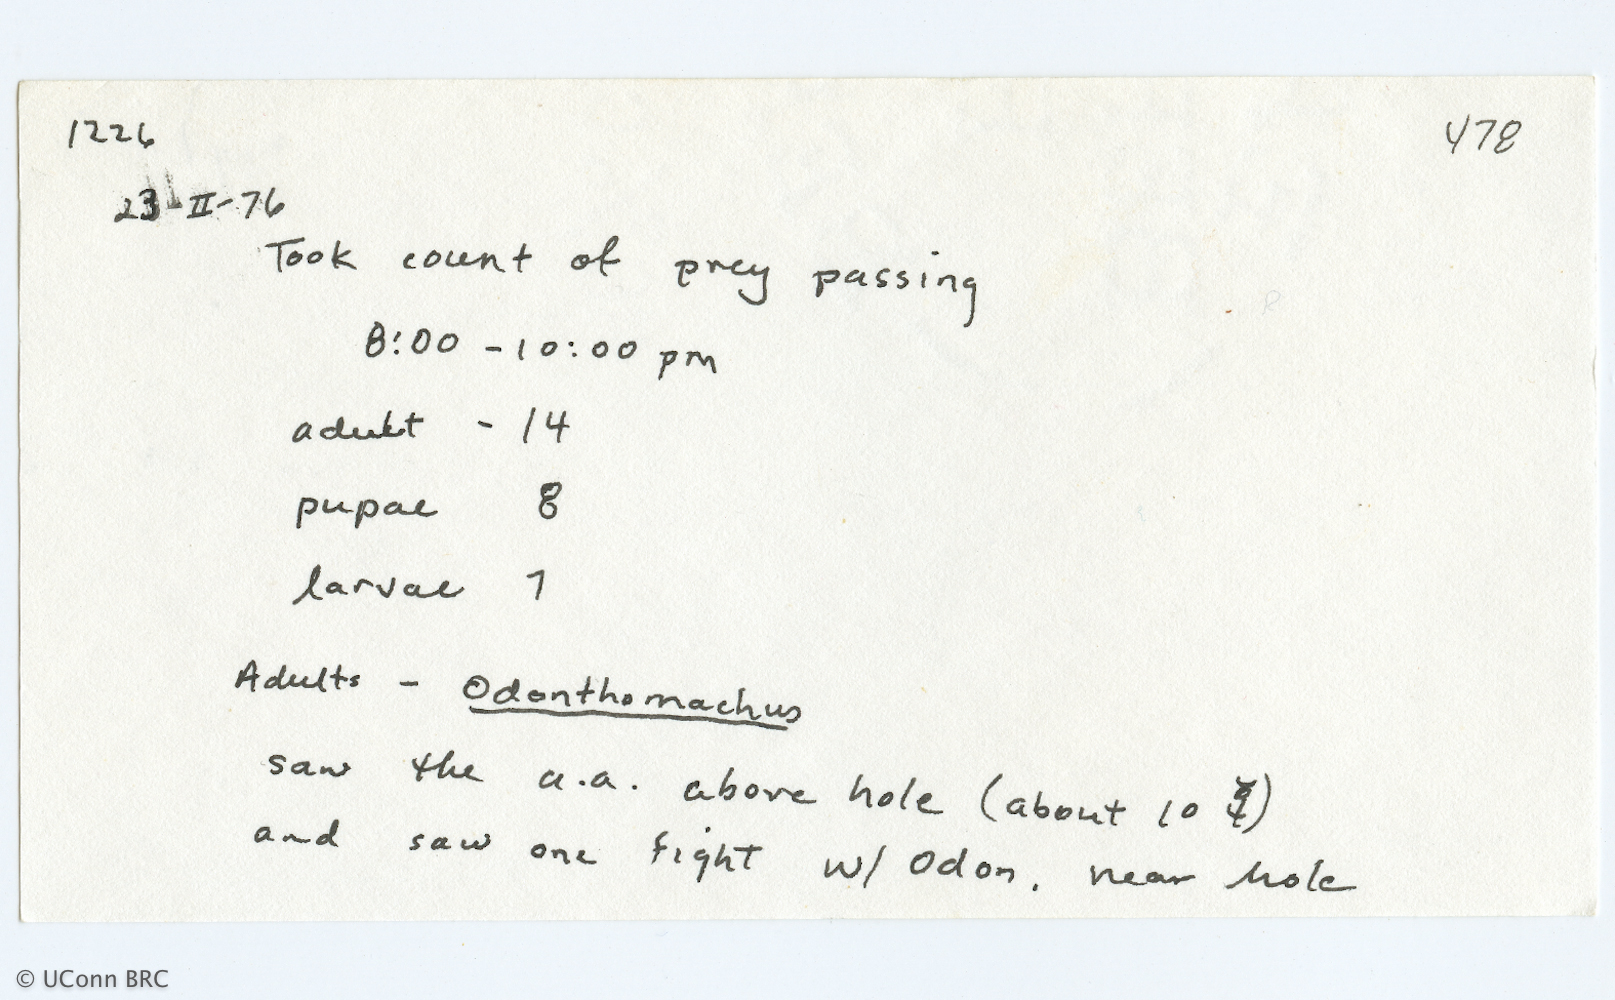 1226
478
23-II-76
Took count of prey passing
8:00 - 10:00 pm
adult - 14
pupae 8
larvae 7
Adults - Odonthomachus
saw the a.a. above hole (about 10 )
and saw one fight w/ Odon. near hole
© UConn BRC